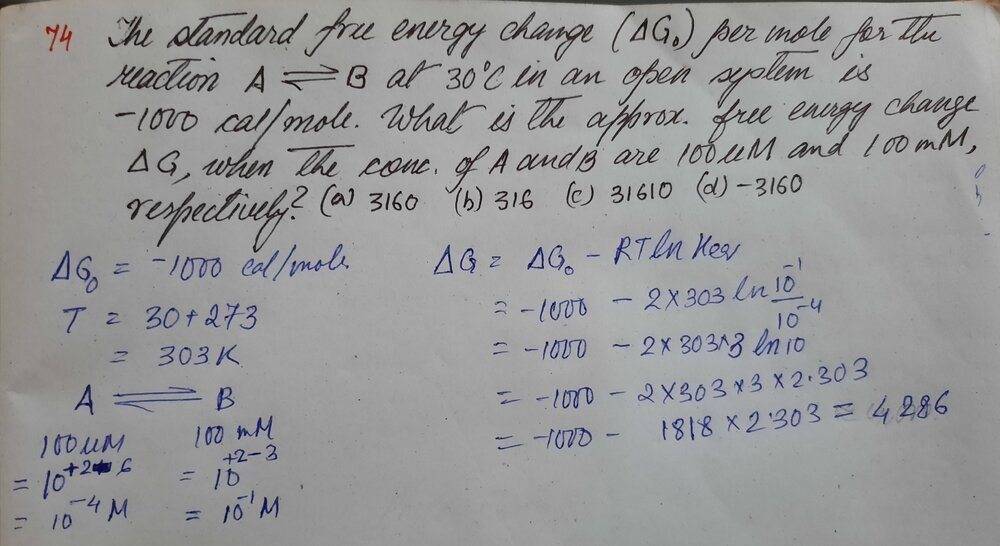 74 The standard free energy change (ΔG₀) per mole for the
reaction A ⇌ B at 30°C in an open system is
-1000 cal/mole. What is the approx. free energy change
ΔG, when the conc. of A and B are 100 uM and 100 mM,
respectively? (a) 3160 (b) 316 (c) 31610 (d) -3160
ΔG₀ = -1000 cal/mole
T = 30+273
= 303K
A ⇌ B
100 uM 100 mM
= 10^+2-6 = 10^+2-3
= 10^-4 M = 10^-1 M
ΔG = ΔG₀ - RT ln Keq
= -1000 - 2×303 ln 10^-1/10^-4
= -1000 - 2×303×3 ln 10
= -1000 - 2×303×3×2.303
= -1000 - 1818×2.303 = 4286